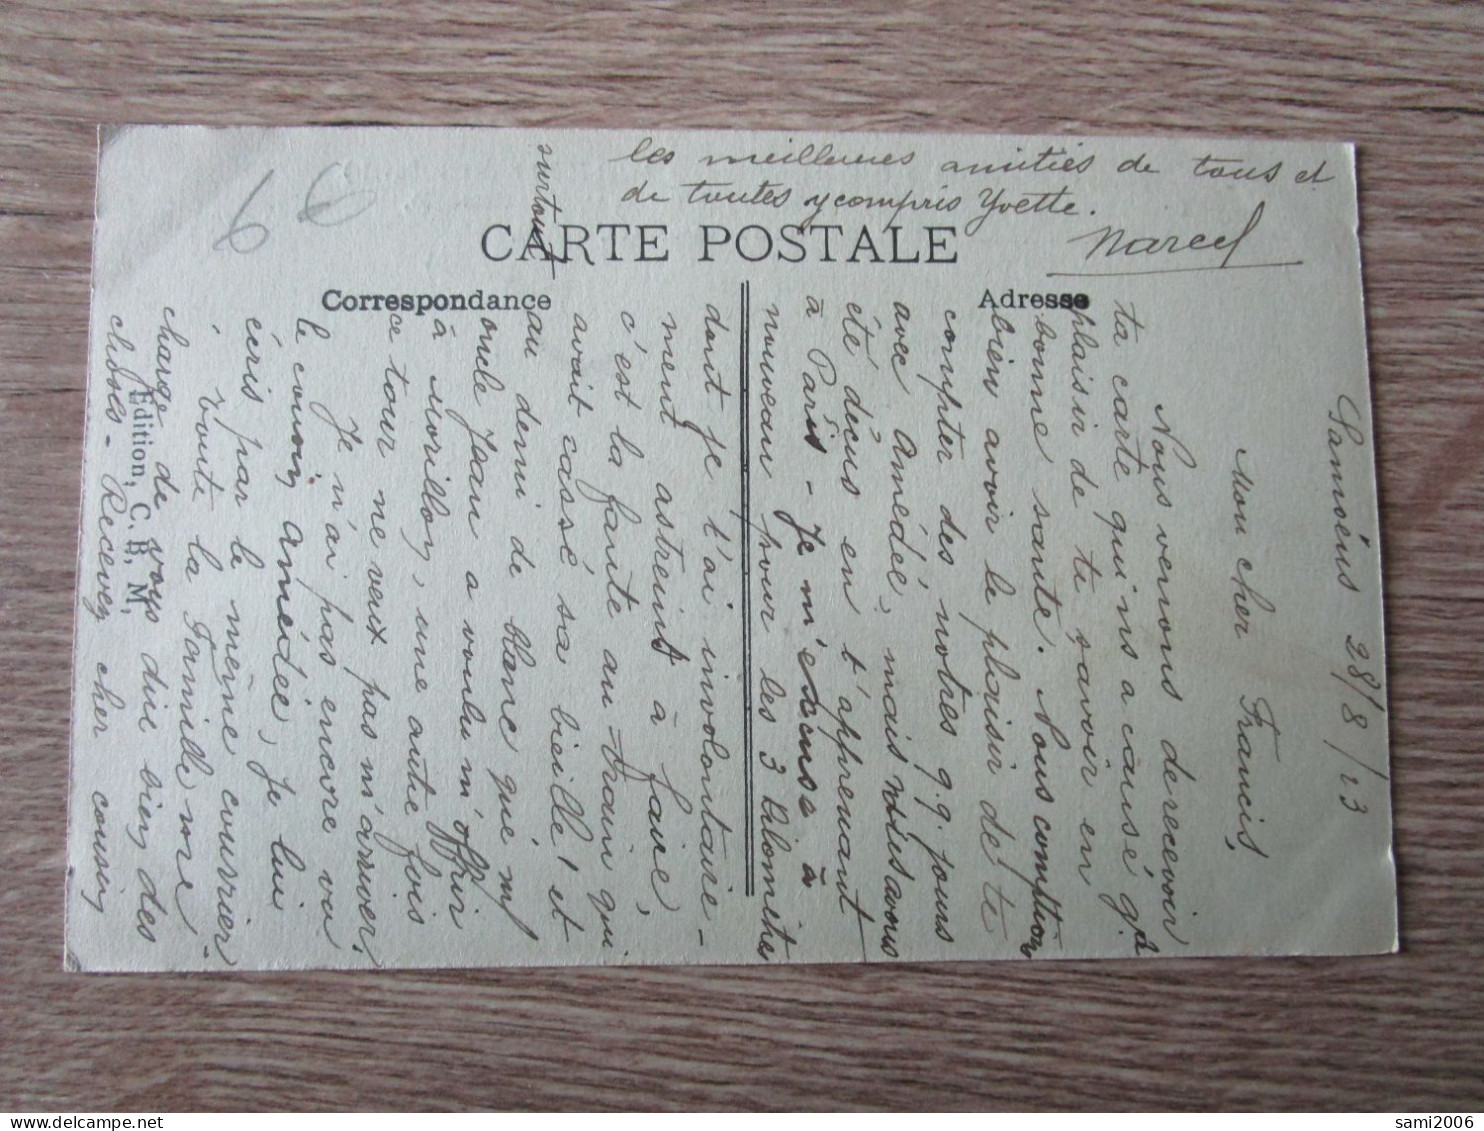 Samoëns 28/8/23
Mon cher Francis,
Nous venons de recevoir
ta carte qui ns a causé gd
plaisir de te savoir en
bonne santé. Nous comptions
bien avoir le plaisir de te
compter des notres q.q. jours
avec Amédée, mais nous avons
été déçus en t'apprenant
à Paris - Je m'excuse à
nouveau pour les 3 kilomètres
dont je t'ai involontaire-
ment astreint à faire,
c'est la faute au train qui
avait cassé sa bielle ! et
au demi de blanc que mr
oncle Jean a voulu m'offrir
à Morillon, une autre fois
ce tour ne veut pas m'arriver,
surtout
Je n'ai pas encore vu
le cousin Amédée, je lui
écris par le même courrier.
Toute la famille me
charge de vous dire bien des
choses - Recevez cher cousin
les meilleures amitiés de tous et
de toutes y compris Yvette.
Marcel
CARTE POSTALE
Correspondance
Adresse
Edition, C. B, M,
6 €
sami2006
delcampe.net